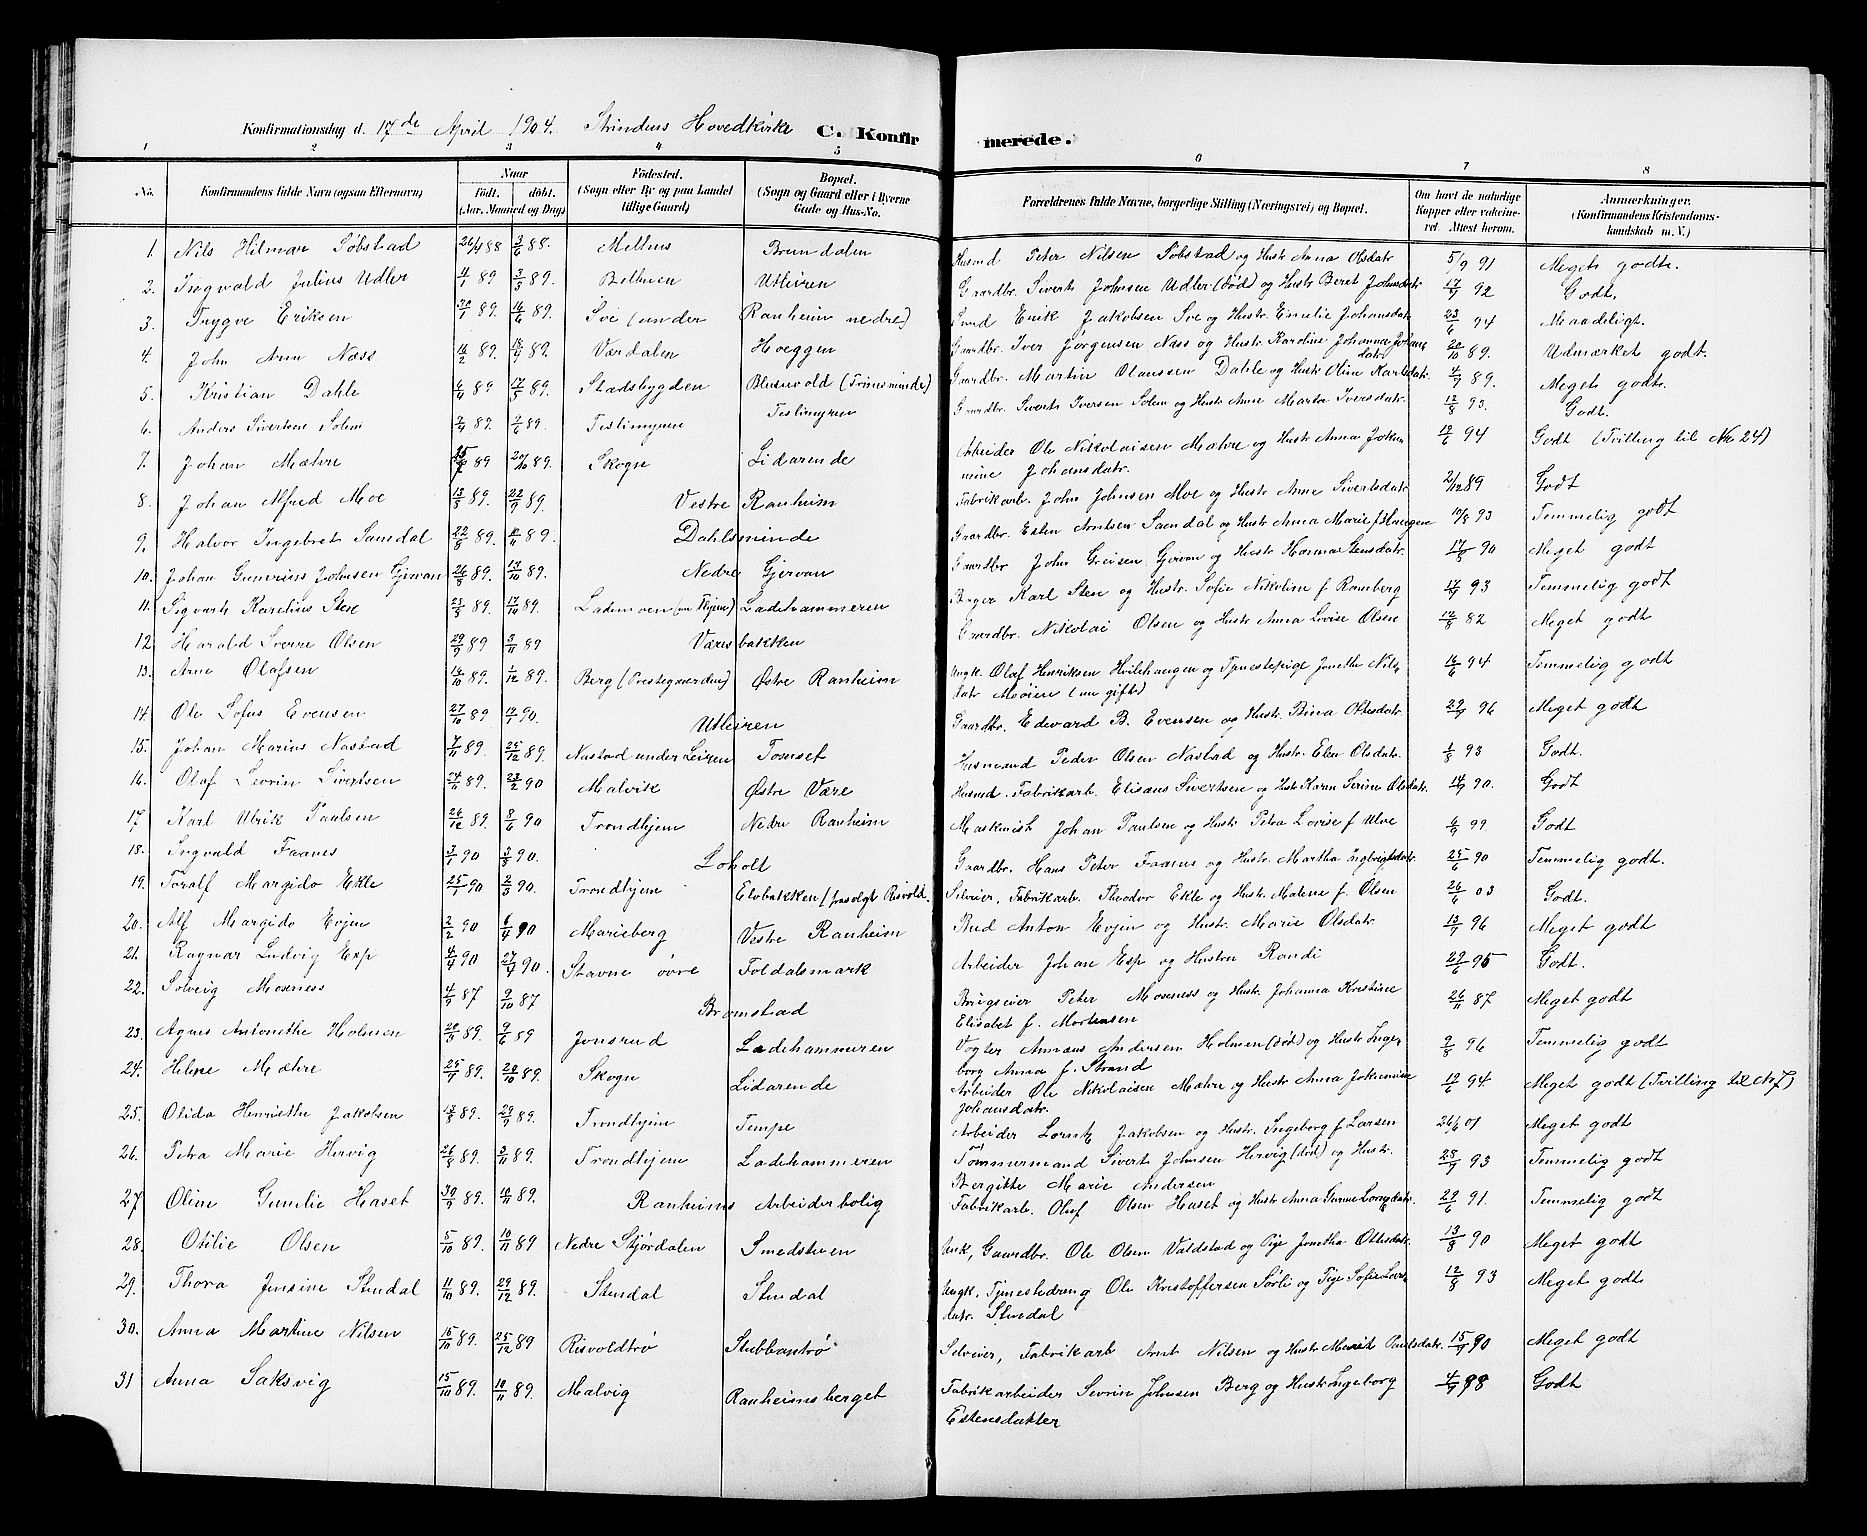 Konfirmationsdag d. 17de April 1904. Strindens Hovedkirke C. Konfirmerede.
1 2 3 4 5 6 7 8
No. Konfirmandens fulde Navn (ogsaa Efternavn) Naar födt. döbt. (Aar, Maaned og Dag) Födested. (Sogn eller By og paa Landet tillige Gaard) Bopæl. (Sogn og Gaard eller i Byerne Gade og Hus-No. Forældrenes fulde Navne, borgerlige Stilling (Næringsvei) og Bopæl. Om havt de naturlige Kopper eller vakcineret. Attest herom. Anmerkninger. (Konfirmandens Kristendomskundskab m. V.)
1. Nils Hilmar Söbstad 26/4 88 3/6 88. Melhus Brundalen Husmd Peter Nilsen Söbstad og Hustr. Anna Olsdatr 5/9 91 Meget godt.
2. Ingvald Julius Udler 4/1 89 3/3 89. Utleiren Gaardbr. Sivert Johnsen Udler (död) og Hustr Beret Johnsdatr 17/9 92 Godt.
3. Trygve Eriksen 89. 16/6 89. Sve (under Ranheim nedre) Smed Erik Jakobsen Sve og Hustr. Emelie Johansdatr 23/6 94 Maadeligt.
4. John Arn Næss 16/2 89. 89. Værdalen Hoeggen Gaardbr. Iver Jørgensen Næss og Hustr. Karoline Johanna Johans
datr 20/10 89. Udmærket godt.
5. Kristian Dahle 6/4 89 17/5 89. Stadsbygden (Trinesminde) Gaardbr. Martin Olaussen Dahle og Hustr Oline Karlsdatr. 4/9 89. Meget godt.
6. Anders Sivertsen Solem 2/4 89 2/6 89. Teslimyren Teslimyren Gaardbr. Sivert Iversen Solem og Hustr. Anne Marta Iversdatr. 12/8 93. Godt.
7. Johan Mæhre 89 20/10 89. Skogn Lidarende Arbeider Ole Nikolaisen Mæhre og Hustr. Anna Jokumine Johansdatr. 12/6 94 Godt (Tvilling til No 24)
8. Johan Alfred Moe 13/8 89. 22/9 89. Vestre Ranheim Fabrikarb. John Johnsen Moe og Hustr Anne Sivertsdatr 2/12 89 Godt
9. Halvor Ingebret Samdal 22/8 89. 2/11 89. Dahlsminde Gaardbr. Esten Arntsen Samdal og Hustr Anna Marie f Haugene 12/8 93 Temmelig godt
10. Johan Gunerius Johnsen Gjervan 26/8 89. 13/10 89. Nedre Gjervan Gaardbr John Greisen Gjervan og Hustr Hanna Stensdatr. 17/8 90 Meget godt
11. Sigvart Karelius Stene 23/8 89. 17/10 89. Lademoen Ladehammeren Karl Stene og Hustr. Sofie Nikoline f Ramberg 93 Temmelig godt
12 Harald Sverre Olsen 29/9 89 3/11 89 Væresbakken Gaardbr. Nikolai Olsen og Hustr Anna Lovise Olsen 12/8 82 Meget godt
13. Arne Olafsen 14/10 89. 1/12 89. Berg (Prestegaarden) Østre Ranheim Ungk. Olaf Henriksen Hvilehaugen og Tjenestepige Jonetta Nils
datr Moien (nu gift) 16/6 94 Temmelig godt
14. Ole Sofus Evensen 27/10 89 12/1 90. Utleiren Gaardbr. Edvard B. Evensen og Hustr. Bina Ottesdatr. 22/9 96 Meget godt
15. Johan Marius Nastad 7/11 89. 25/12 89. Nastad under Leigen Tomset Husmand Peder Olsen Nastad og Hustr. Elen Olsdatr. 1/8 93 Godt.
16. Olaf Sevrin Sivertsen 24/6 89. 23/2 90 Malvik Østre Være Husmd. Fabrikarb. Elisæus Sivertsen og Hustr Karen Serine Olsdatr. 14/9 90. Godt
17 Karl Ulrik Paulsen 26/12 89. 8/6 90 Trondhjem Nedre Ranheim Maskinist Johan Paulsen og Hustr. Petra Lovise f Ulve 6/9 99 Godt
18. Ingvald Faanes 3/1 90 3/3 90. Loholt Gaardbr. Hans Peter Faanes og Hustr. Martha Ingbrigtsdatr 25/6 90 Temmelig godt.
19. Toralf Margido Ekle 25/1 90 2/3 90. Trondhjem Elvebakken (frasolgt Risvold). Selveier, Fabrikarb. Theodor Ekle og Hustr. Malene f. Olsen 26/6 03 Godt.
20. Alf Margido Evjen 2/2 90 6/4 90 Marieberg Vestre Ranheim Bud Anton Evjen og Hustr. Marie Olsdatr. 13/9 96 Meget godt
21. Ragnar Ludvig Esp 4/4 90 27/4 90. Stavne övre Foldalsmark Arbeider Johan Esp og Hustru Randi 29/6 95 Godt.
22. Solveig Moseness 4/9 87 9/10 87 Bromstad Brugseier Peter Moseness og Hustr. Johanna Kristine
Elisabet f. Mortensen 26/11 87 Meget godt
23. Agnes Antonethe Holmen 28/3 89. 9/6 89 Jonsrud Ladehammeren Vogter Annæus Andersen Holmen (död) og Hustr Inge
borg Anna f. Strand 2/8 96 Temmelig godt
24. Helene Mæhre 25/7 89. 20/10 89. Skogn Lidarende Arbeider Ole Nikolaisen Mæhre og Hustr Anna Jokumine
Johansdatr. 12/6 94 Meget godt (Tvilling til No 7)
25. Olida Henriette Jakobsen 13/8 89. 29/9 89. Trondhjem Tempe Arbeider Lorntz Jakobsen og Hustr. Ingeborg f Larsen 26/6 01 Meget godt
26. Petra Marie Hervig 26/8 89. 3/11 89. Trondhjem Ladehammeren Tömmermand Sivert Johnsen Hervig (död) og Hustr.
Bergitte Marie Andersen 28/9 93 Temmelig godt
27 Oline Gunelie Haset 30/9 89. 10/11 89. Ranheims Arbeiderbolig Fabrikarb. Oluf Olsen Haset og Hustr Anna 29/6 91. Temmelig godt
28. Otilie Olsen 5/10 89. 10/11 89 Nedre Stjørdalen Smedstuen Unk, Gaardbr. Ole Olsen Valdstad og Pige Jonetha Ottesdatr. 13/9 90 Meget godt
29. Thora Jensine Stendal 11/10 89. 29/12 89. Stendal Stendal Ungk. Tjenestedreng Ole Kristoffersen Sørli og Pige Sofie
datr. Stendal 12/8 93 Meget godt
30. Anna Martine Nilsen 15/10 89. 25/12 89 Risvoldtrø Stubbantrø Selveier, Fabrikarb Arnt Nilsen og Hustr Marit Paulsdatr. 15/9 90 Meget godt
31 Anna Saksvig 15/10 89. 10/11 89. Malvig Ranheimsberget Fabrikarbeider Sevrin Johnsen Berg og Hustr. Ingeborg
Estensdatter 4/9 88 Godt